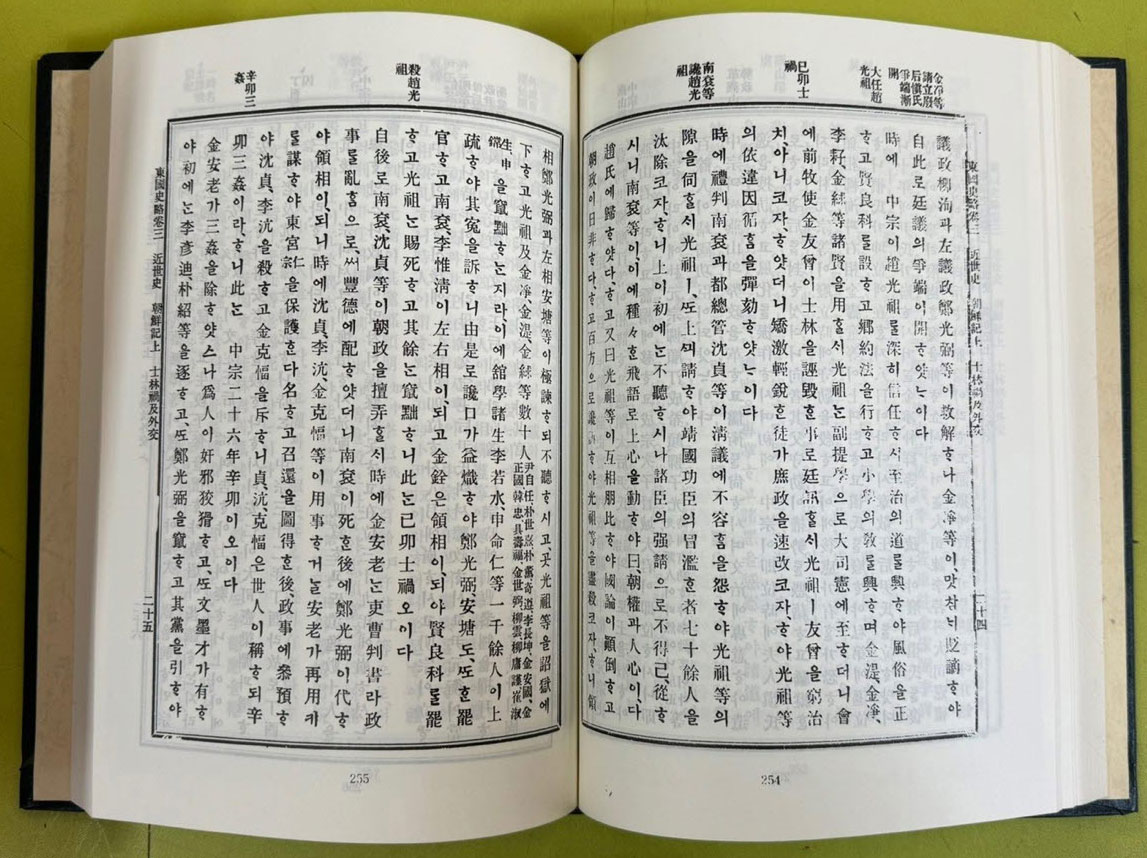 金淨等
請立廢
后愼氏
爭端漸
開
大任趙
光祖
己卯士
禍
南袞等
讒趙光
祖
東國史略卷三 近世史 朝鮮記上 士林禍及外交
二十四
議政柳洵과左議政鄭光弼等이救解ᄒᆞ나金淨等이,맛ᄎᆞᆷᄂᆡ貶謫ᄒᆞ야
自此로廷議의爭端이開ᄒᆞ얏ᄂᆞ이다
時에 中宗이趙光祖를深히信任ᄒᆞ시至治의道를興ᄒᆞ야風俗을正
ᄒᆞ고賢良科를設ᄒᆞ고鄕約法을行ᄒᆞ고小學의敎를興ᄒᆞ며金湜,金淨,
李耔,金絿等諸賢을用ᄒᆞᆯᄉᆡ光祖ᄂᆞᆫ副提學으로大司憲에至ᄒᆞ더니會
에前牧使金友曾이士林을誣毁ᄒᆞᆫ事로廷訊ᄒᆞᆯᄉᆡ光祖ㅣ友曾을窮治
치,아니코자,ᄒᆞ얏더니矯激輕銳ᄒᆞᆫ徒가庶政을速改코자,ᄒᆞ야光祖等
의依違因循홈을彈劾ᄒᆞ얏ᄂᆞ이다
時에禮判南袞과都總管沈貞等이淸議에不容홈을怨ᄒᆞ야光祖等의
隙을伺ᄒᆞᆯᄉᆡ光祖ㅣ,ᄯᅩ上ᄭᅴ請ᄒᆞ야靖國功臣의冒濫ᄒᆞᆫ者七十餘人을
汰除코자,ᄒᆞ니上이初에ᄂᆞᆫ不聽ᄒᆞ시나諸臣의强請으로不得已,從ᄒᆞ
시니南袞等이,이에種々ᄒᆞᆫ飛語로上心을動ᄒᆞ야曰,朝權과人心이,다
趙氏에歸ᄒᆞ얏다,ᄒᆞ고又曰光祖等이互相朋比ᄒᆞ야國論이顚倒ᄒᆞ고
朝政이日非ᄒᆞ다,ᄒᆞ고百方으로讒訴ᄒᆞ야光祖等을盡殺코자,ᄒᆞ니領
254
殺趙光
祖
辛卯三
姦
相鄭光弼과左相安塘等이極諫ᄒᆞ되不聽ᄒᆞ시고,곳光祖等을詔獄에
下ᄒᆞ고光祖及金淨,金湜,金絿等數十人尹自任朴世熹朴薰奇遵李長坤,金安國,金
正國韓忠具壽福,金世弼,柳雲,柳庸謹崔淑
生,申
鏛을竄黜ᄒᆞᄂᆞᆫ지라이에舘學諸生李若水,申命仁等一千餘人이上
疏ᄒᆞ야其寃을訴ᄒᆞ니由是로讒口가益熾ᄒᆞ야鄭光弼,安塘도,ᄯᅩᄒᆞᆫ罷
官ᄒᆞ고南袞,李惟淸이左右相이되고金銓은領相이,되야賢良科를罷
ᄒᆞ고光祖ᄂᆞᆫ賜死ᄒᆞ고其餘ᄂᆞᆫ竄黜ᄒᆞ니此ᄂᆞᆫ己卯士禍오이다
自後로南袞,沈貞等이朝政을擅弄ᄒᆞᆯᄉᆡ時에金安老ᄂᆞᆫ吏曹判書라政
事를亂홈으로,써豐德에配ᄒᆞ얏더니南袞이死ᄒᆞᆫ後에鄭光弼이代ᄒᆞ
야領相이,되니時에沈貞,李沆,金克愊等이用事ᄒᆞ거ᄂᆞᆯ安老가再用키
를謀ᄒᆞ야東宮仁宗을保護ᄒᆞᆫ다名ᄒᆞ고召還을圖得ᄒᆞᆫ後,政事에參預ᄒᆞ
야沈貞,李沆을殺ᄒᆞ고金克愊을斥ᄒᆞ니貞,沆,克愊은世人이稱ᄒᆞ되辛
卯三姦이라,ᄒᆞ니此ᄂᆞᆫ 中宗二十六年辛卯이오이다
金安老가三姦을除ᄒᆞ얏스나爲人이奸邪狡猾ᄒᆞ고,ᄯᅩ文墨才가有ᄒᆞ
야初에ᄂᆞᆫ李彦迪,朴紹等을逐ᄒᆞ고,ᄯᅩ鄭光弼을竄ᄒᆞ고其黨을引ᄒᆞ야
東國史略卷三 近世史 朝鮮記上 士林禍及外交
二十五
255